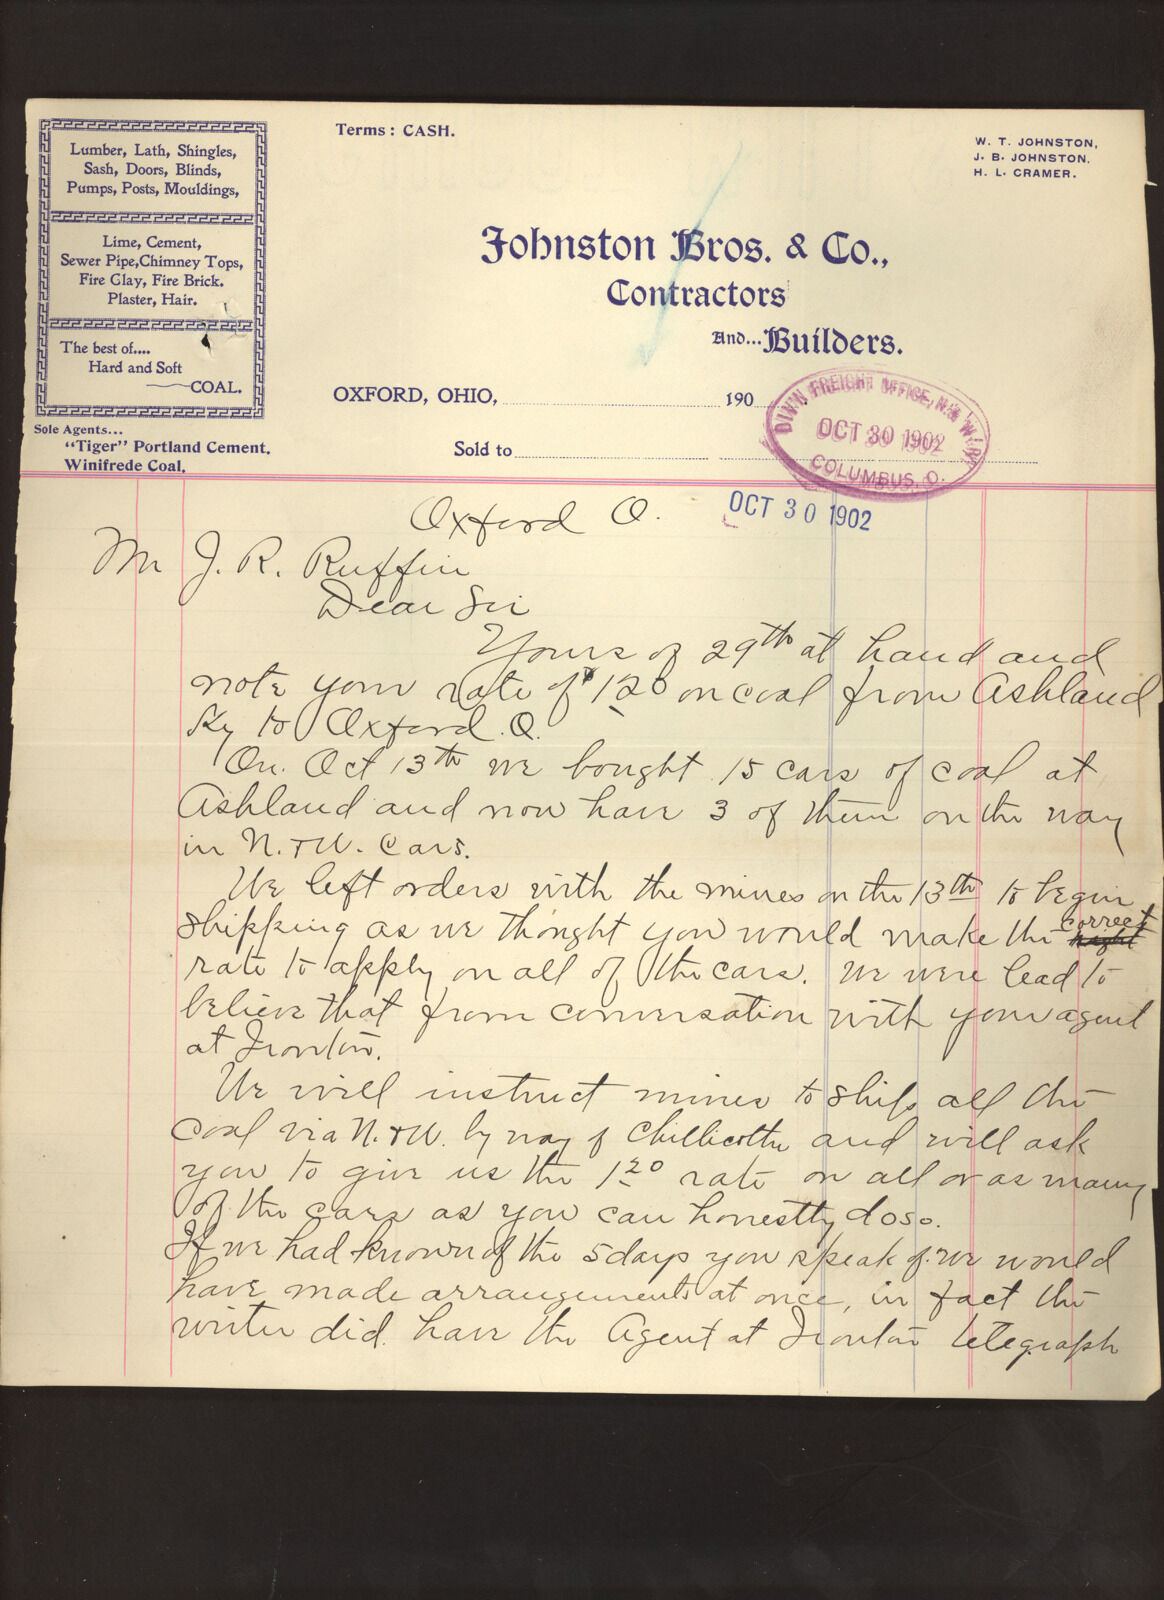 Terms: CASH.
W. T. JOHNSTON,
J. B. JOHNSTON.
H. L. CRAMER.
Lumber, Lath, Shingles,
Sash, Doors, Blinds,
Pumps, Posts, Mouldings,
Lime, Cement,
Sewer Pipe, Chimney Tops,
Fire Clay, Fire Brick.
Plaster, Hair.
The best of....
Hard and Soft
COAL.
Sole Agents...
"Tiger" Portland Cement.
Winifrede Coal.
Johnston Bros. & Co.,
Contractors
And... Builders.
OXFORD, OHIO, 190
Sold to
DIV'N FREIGHT OFFICE, N. & W. RY
OCT 30 1902
COLUMBUS, O.
OCT 30 1902
Oxford O.
Mr J. R. Ruffin
Dear Sir
Yours of 29th at hand and
note your rate of $1 20 on coal from Ashland
Ky to Oxford O.
On Oct 13th we bought 15 cars of coal at
Ashland and now have 3 of them on the way
in N. & W. Cars.
We left orders with the mines on the 13th to begin
shipping as we thought you would make the correct
rate to apply on all of the cars. We were lead to
believe that from conversation with your agent
at Ironton.
We will instruct mines to ship all the
coal via N. & W. by way of Chillicothe and will ask
you to give us the 1 20 rate on all or as many
of the cars as you can honestly do so.
If we had known of the 5 days you speak of we would
have made arrangements at once, in fact the
writer did have the Agent at Ironton telegraph